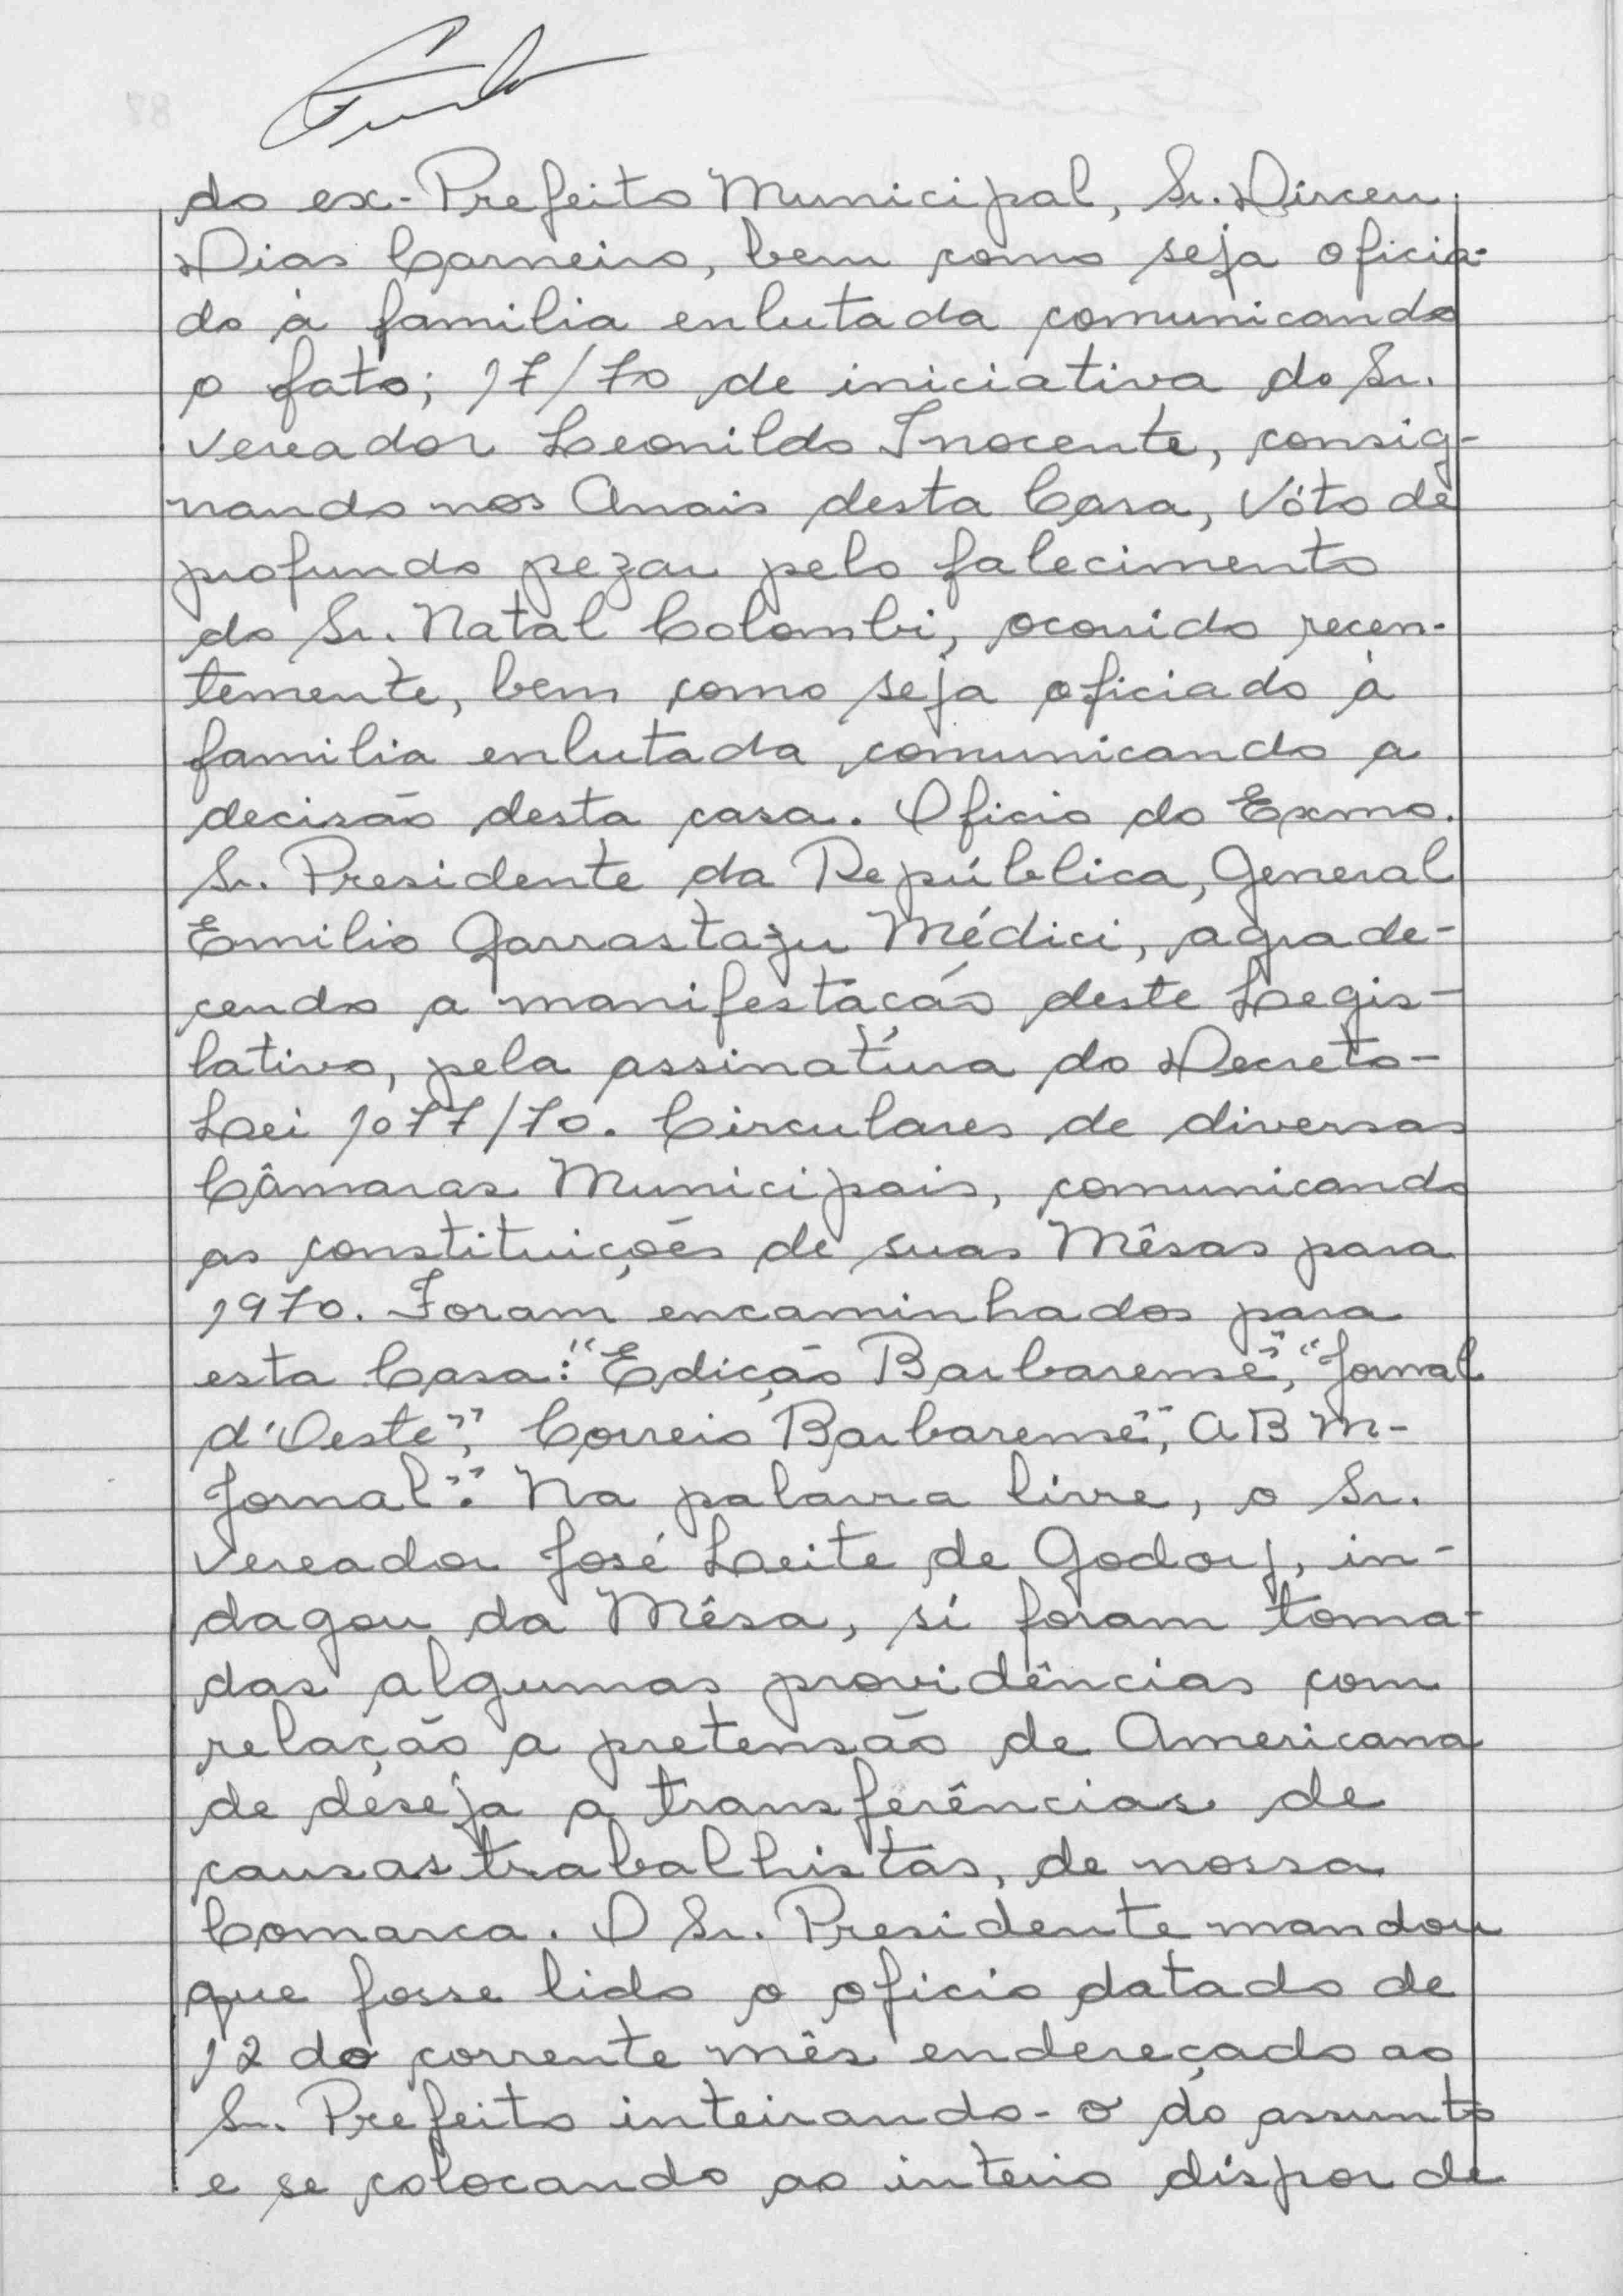 do ex-Prefeito Municipal, Sr. Dirceu
Dias Carneiro, bem como seja oficia-
do à familia enlutada comunicando
o fato; 17/70 de iniciativa do Sr.
vereador Leonildo Inocente, consig-
nando nos Anais desta Casa, Vóto de
profundo pezar pelo falecimento
do Sr. Natal Colombi, ocorrido recen-
temente, bem como seja oficiado à
familia enlutada comunicando a
decisão desta casa. Oficio do Exmo.
Sr. Presidente da República, General
Emilio Garrastazu Médici, agrade-
cendo a manifestação deste Legis-
lativo, pela assinatura do Decreto-
Lei 1077/70. Circulares de diversas
Câmaras Municipais, comunicando
as constituições de suas Mêsas para
1970. Foram encaminhados para
esta Casa: "Edição Barbarense", "Jornal
d'Oeste", Correio Barbarense", ABM-
Jornal". Na palavra livre, o Sr.
vereador José Leite de Godoy, in-
dagou da Mêsa, si foram toma-
das algumas providências com
relação a pretensão de Americana
de deseja a transferências de
causas trabalhistas, de nossa
Comarca. O Sr. Presidente mandou
que fosse lido o oficio datado de
12 do corrente mês endereçado ao
Sr. Prefeito inteirando-o do assunto
e se colocando ao inteiro dispor de